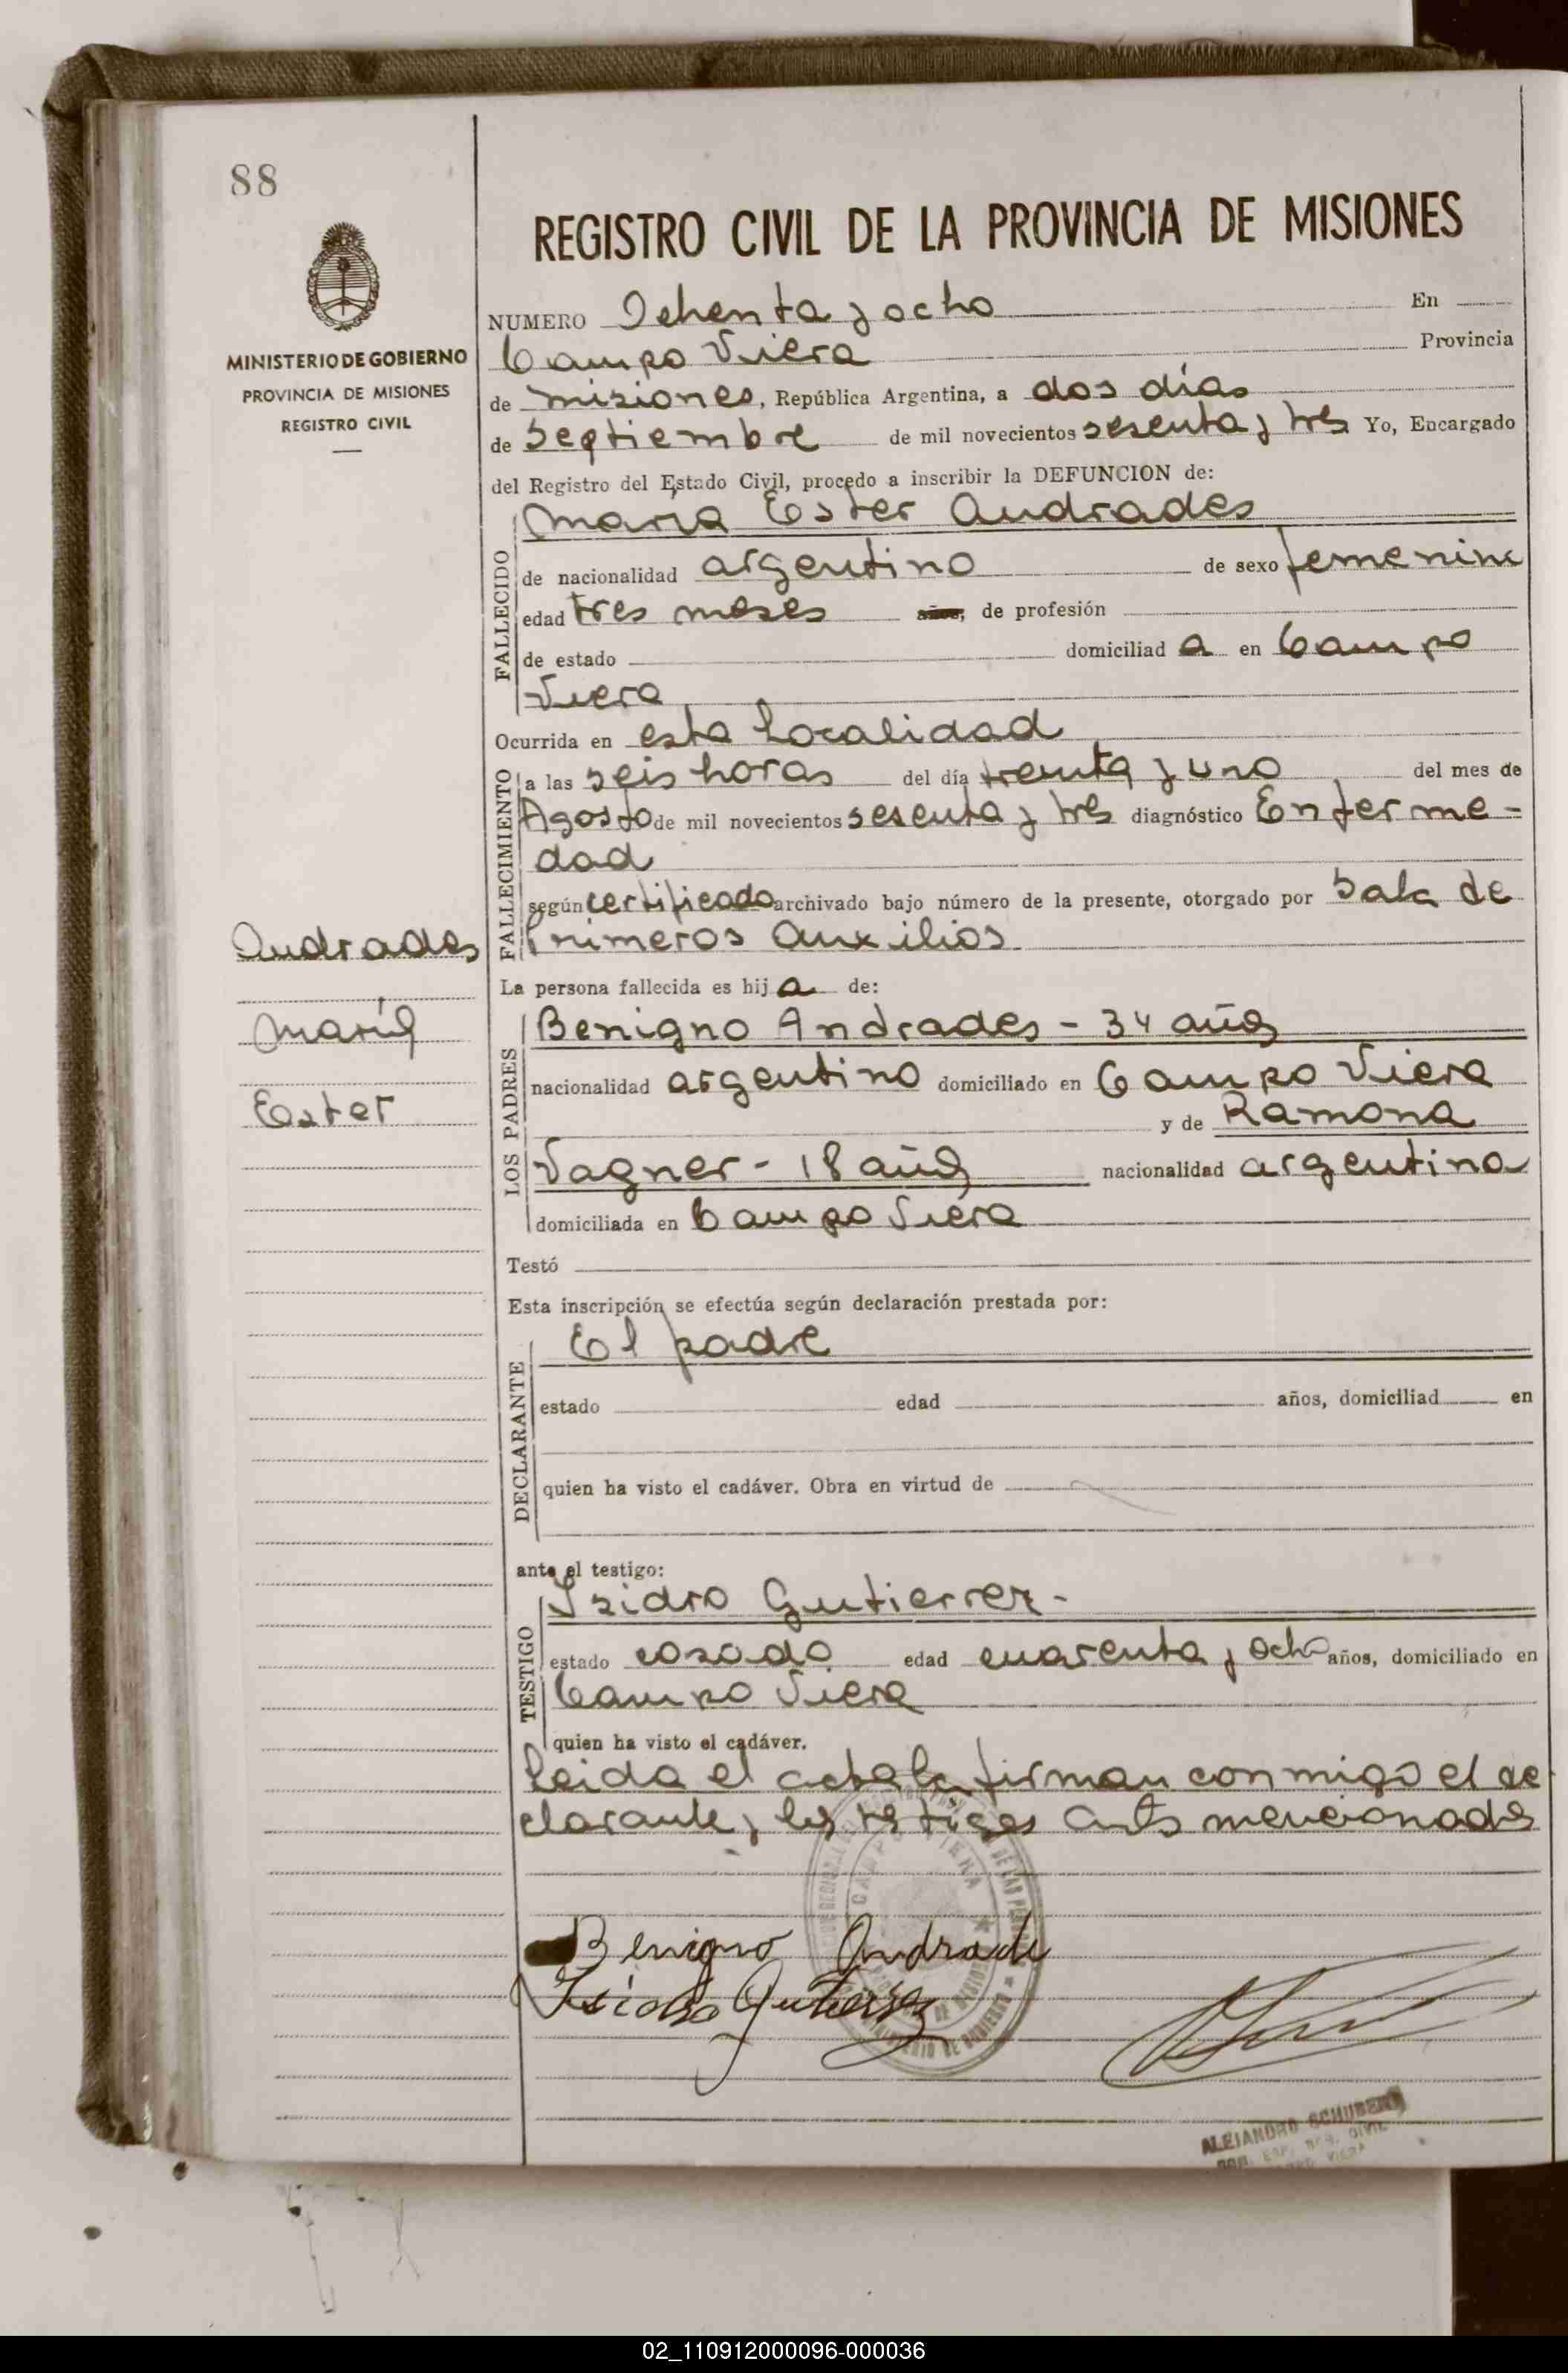 88
MINISTERIO DE GOBIERNO
PROVINCIA DE MISIONES
REGISTRO CIVIL
REGISTRO CIVIL DE LA PROVINCIA DE MISIONES
NUMERO Ochenta y ocho En
Campo Viera Provincia
de Misiones, República Argentina, a dos días
de Septiembre de mil novecientos sesenta y tres Yo, Encargado
del Registro del Estado Civil, procedo a inscribir la DEFUNCION de:
FALLECIDO
María Ester Andrades
de nacionalidad argentino de sexo femenino
edad tres meses años, de profesión
de estado domiciliad a en Campo
Viera
Ocurrida en esta Localidad
FALLECIMIENTO
a las seis horas del día treinta y uno del mes de
Agosto de mil novecientos sesenta y tres diagnóstico Enferme=
dad
según certificado archivado bajo número de la presente, otorgado por Sala de
Primeros Auxilios
Andrades
María
Ester
La persona fallecida es hij a de:
LOS PADRES
Benigno Andrades - 34 años
nacionalidad argentino domiciliado en Campo Viera
y de Ramona
Vagner - 18 años nacionalidad argentina
domiciliada en Campo Viera
Testó
Esta inscripción se efectúa según declaración prestada por:
DECLARANTE
El padre
estado edad años, domiciliad en
quien ha visto el cadáver. Obra en virtud de
ante el testigo:
TESTIGO
Isidro Gutierrez -
estado casado edad cuarenta y ocho años, domiciliado en
Campo Viera
quien ha visto el cadáver.
Leida el acta la firman conmigo el de
clarante y los testigos antes mencionados
Benigno Andrade
Isidro Gutierrez
ALEJANDRO SCHUBERT
02_110912000096-000036